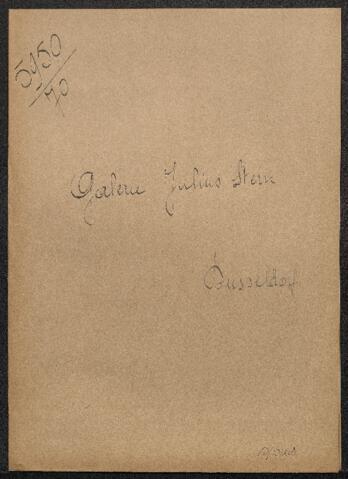 5950/70
Galerie Julius Stern
Düsseldorf